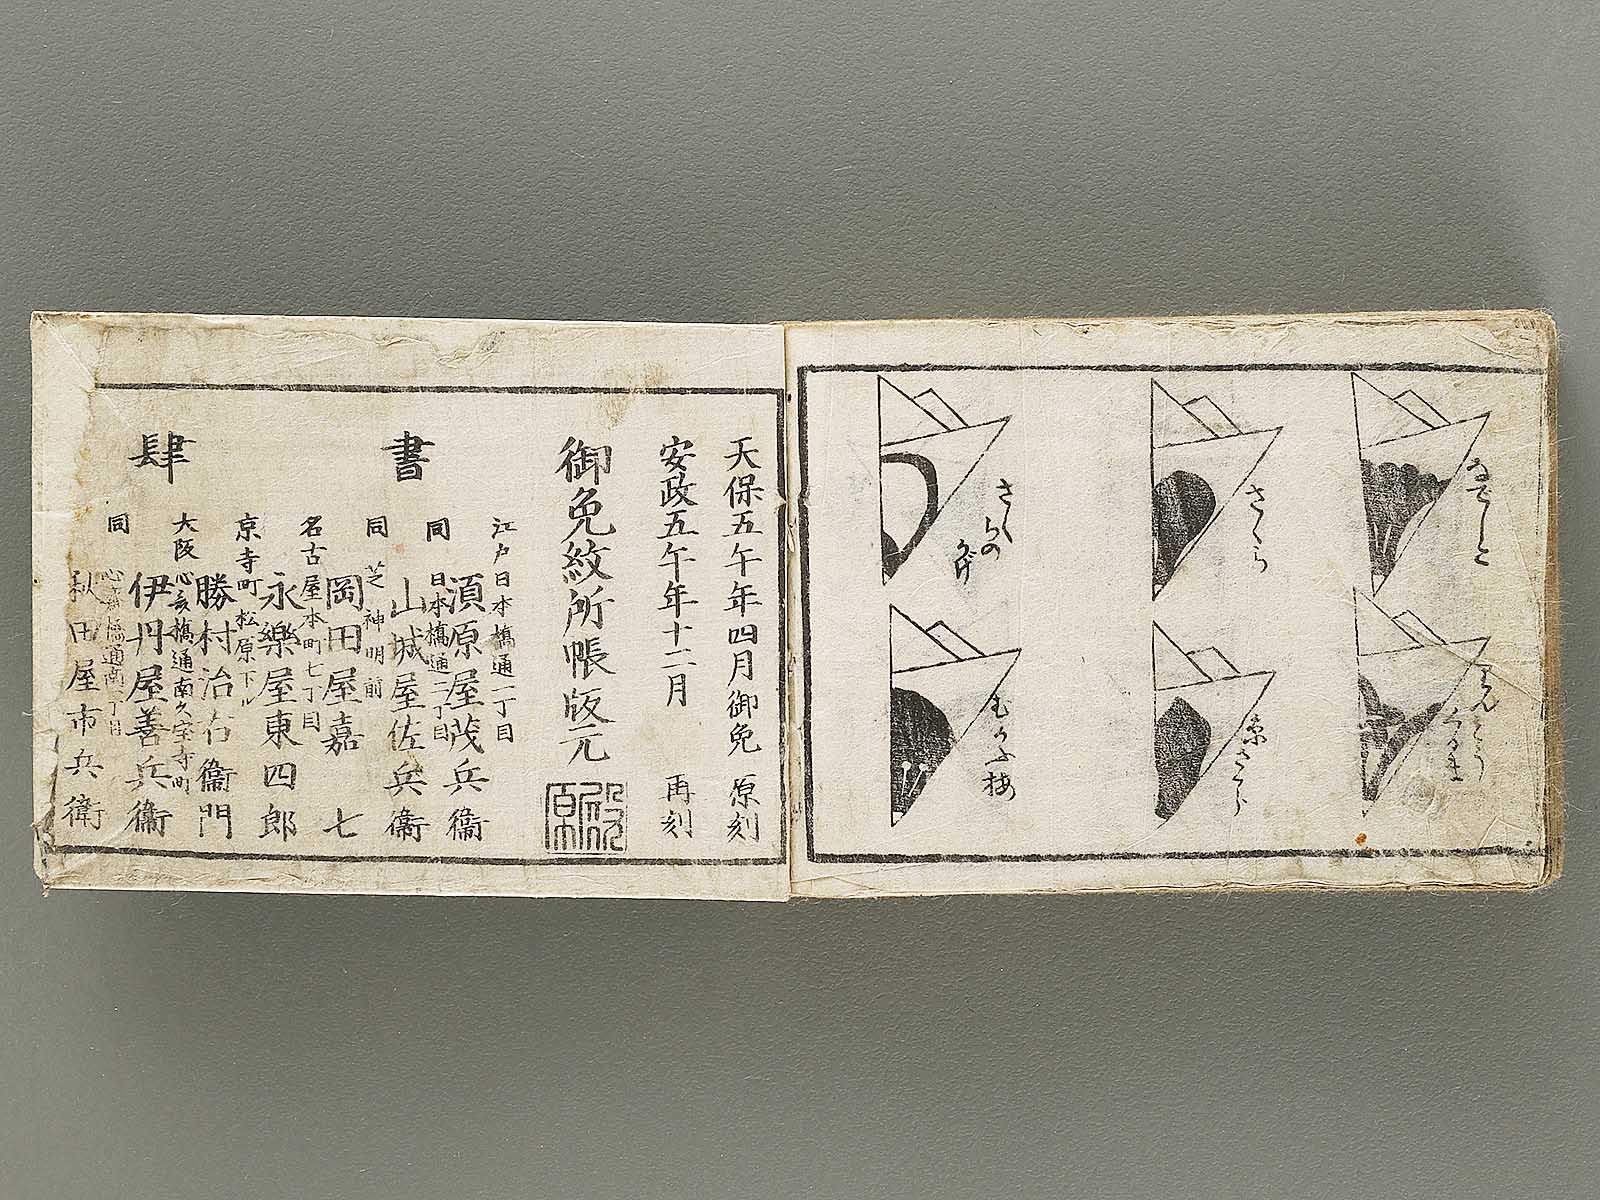 なでしこ
りんどう
くるま
さくら
糸さくら
さくらの
かげ
むかふ梅
天保五午年四月御免 原刻
安政五午年十二月 再刻
御免紋所帳版元
書
肆
江戸日本橋通一丁目
須原屋茂兵衞
同 日本橋通二丁目
山城屋佐兵衞
同 芝神明前
岡田屋嘉七
名古屋本町七丁目
永樂屋東四郎
京寺町松原下ル
勝村治右衞門
大阪心斎橋通南久宝寺町
伊丹屋善兵衞
同 心斎橋通南一丁目
秋田屋市兵衛